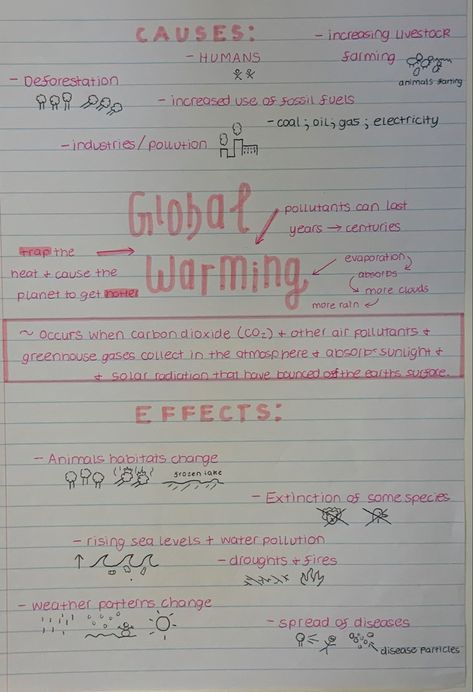 CAUSES:
- increasing livestock
farming
- HUMANS
animals farting
- Deforestation
- increased use of fossil fuels
- coal ; oil ; gas ; electricity
- industries / pollution
Global
Warming
pollutants can last
years → centuries
trap the
heat + cause the
planet to get hotter
evaporation
absorbs
more clouds
more rain
~ occurs when carbon dioxide (CO₂) + other air pollutants +
greenhouse gases collect in the atmosphere + absorbs sunlight +
+ solar radiation that have bounced off the earths surface.
EFFECTS:
- Animals habitats change
frozen lake
- Extinction of some species
- rising sea levels + water pollution
- droughts + fires
- weather patterns change
- spread of diseases
disease particles